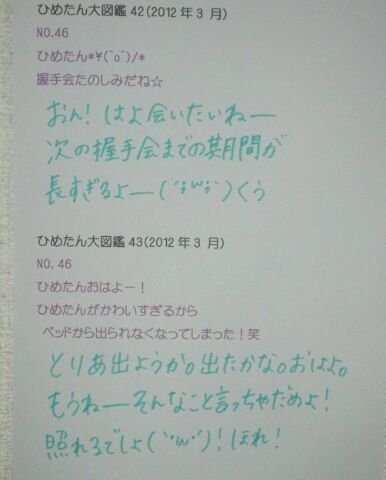 ひめたん大図鑑 42(2012年3月)
NO.46
ひめたん*¥(^o^)/*
握手会たのしみだね☆
おん！はよ会いたいねー
次の握手会までの期間が
長すぎるよー(´;ω;`)くぅ
ひめたん大図鑑 43(2012年3月)
NO.46
ひめたんおはよー！
ひめたんがかわいすぎるから
ベッドから出られなくなってしまった！笑
とりあ出ようか。出たかな。おはよ。
もうねーそんなこと言っちゃだめよ！
照れるでしょ(`･ω･´)！ほれ！